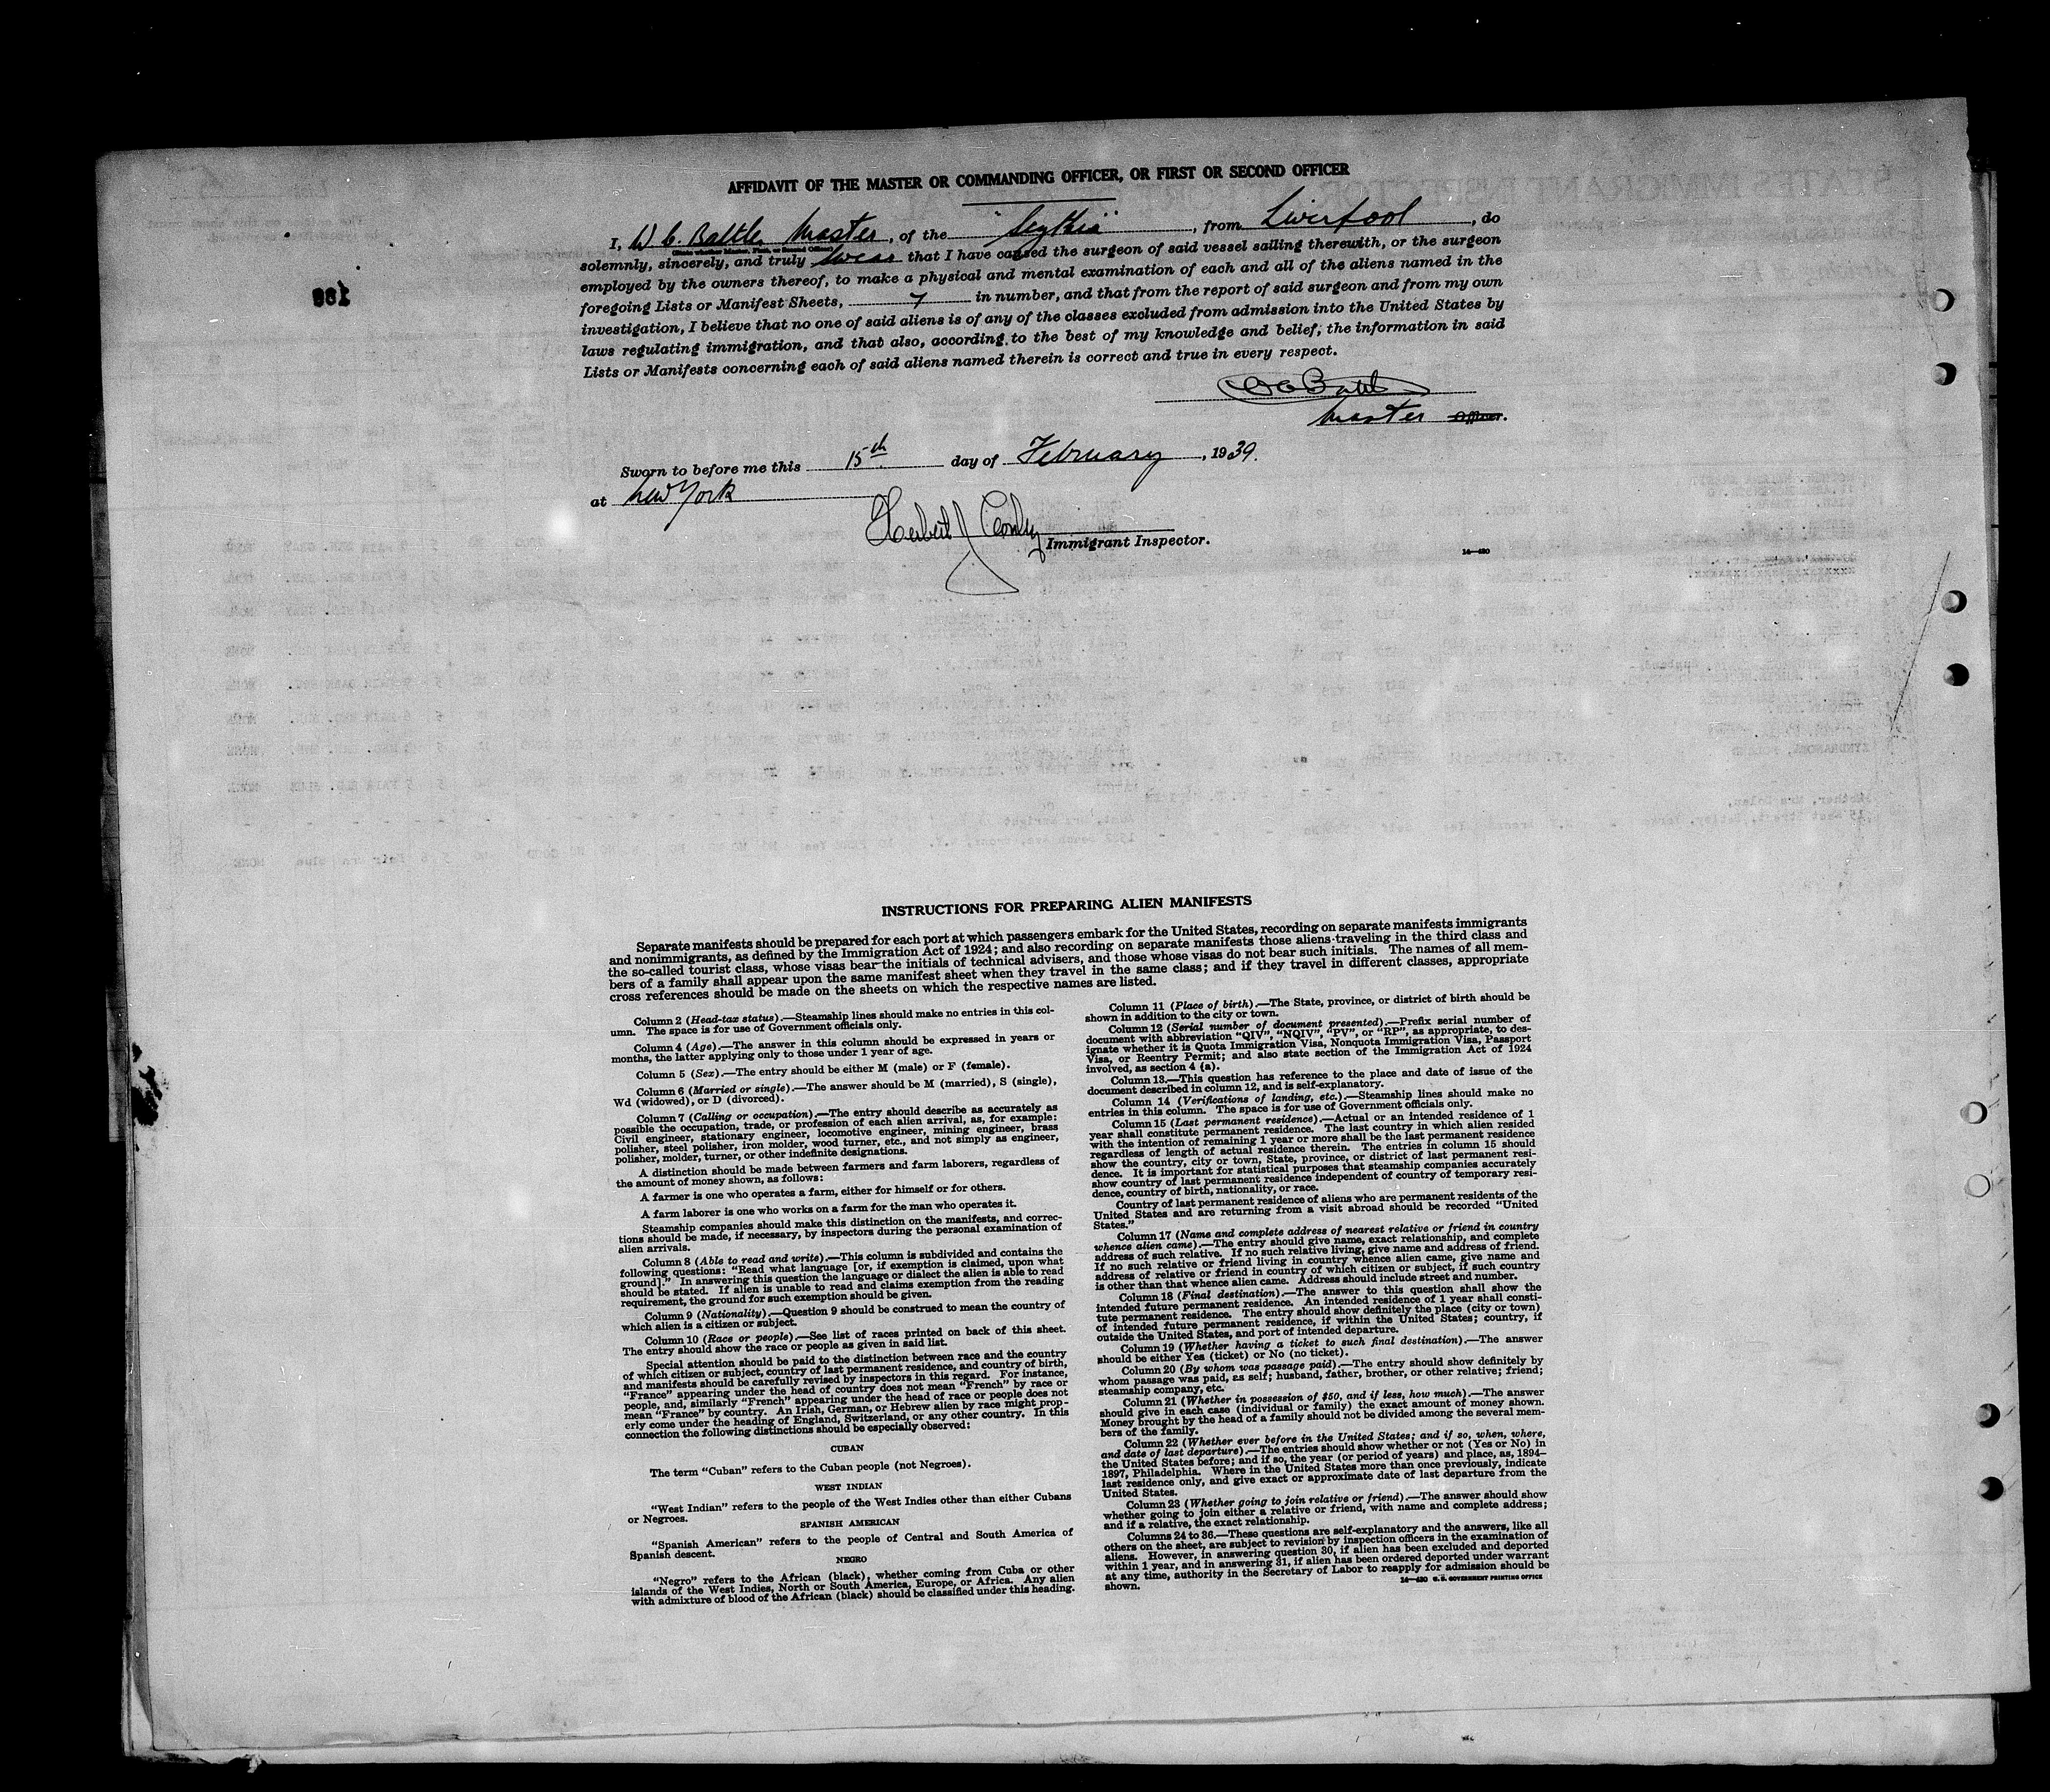 AFFIDAVIT OF THE MASTER OR COMMANDING OFFICER, OR FIRST OR SECOND OFFICER
I, W C. Battle, Master, of the "Scythia", from Liverpool, do
(State whether Master, First, or Second Officer)
solemnly, sincerely, and truly swear that I have caused the surgeon of said vessel sailing therewith, or the surgeon
employed by the owners thereof, to make a physical and mental examination of each and all of the aliens named in the
foregoing Lists or Manifest Sheets, 7 in number, and that from the report of said surgeon and from my own
investigation, I believe that no one of said aliens is of any of the classes excluded from admission into the United States by
laws regulating immigration, and that also, according to the best of my knowledge and belief, the information in said
Lists or Manifests concerning each of said aliens named therein is correct and true in every respect.
Master Officer.
Sworn to before me this 15th day of February, 1939.
at New York
Herbert J
Immigrant Inspector.
14—430
INSTRUCTIONS FOR PREPARING ALIEN MANIFESTS
Separate manifests should be prepared for each port at which passengers embark for the United States, recording on separate manifests immigrants
and nonimmigrants, as defined by the Immigration Act of 1924; and also recording on separate manifests those aliens traveling in the third class and
the so-called tourist class, whose visas bear the initials of technical advisers, and those whose visas do not bear such initials. The names of all mem-
bers of a family shall appear upon the same manifest sheet when they travel in the same class; and if they travel in different classes, appropriate
cross references should be made on the sheets on which the respective names are listed.
Column 2 (Head-tax status).—Steamship lines should make no entries in this col-
umn. The space is for use of Government officials only.
Column 4 (Age).—The answer in this column should be expressed in years or
months, the latter applying only to those under 1 year of age.
Column 5 (Sex).—The entry should be either M (male) or F (female).
Column 6 (Married or single).—The answer should be M (married), S (single),
Wd (widowed), or D (divorced).
Column 7 (Calling or occupation).—The entry should describe as accurately as
possible the occupation, trade, or profession of each alien arrival, as, for example:
Civil engineer, stationary engineer, locomotive engineer, mining engineer, brass
polisher, steel polisher, iron molder, wood turner, etc., and not simply as engineer,
polisher, molder, turner, or other indefinite designations.
A distinction should be made between farmers and farm laborers, regardless of
the amount of money shown, as follows:
A farmer is one who operates a farm, either for himself or for others.
A farm laborer is one who works on a farm for the man who operates it.
Steamship companies should make this distinction on the manifests, and correc-
tions should be made, if necessary, by inspectors during the personal examination of
alien arrivals.
Column 8 (Able to read and write).—This column is subdivided and contains the
following questions: "Read what language [or, if exemption is claimed, upon what
ground]." In answering this question the language or dialect the alien is able to read
should be stated. If alien is unable to read and claims exemption from the reading
requirement, the ground for such exemption should be given.
Column 9 (Nationality).—Question 9 should be construed to mean the country of
which alien is a citizen or subject.
Column 10 (Race or people).—See list of races printed on back of this sheet.
The entry should show the race or people as given in said list.
Special attention should be paid to the distinction between race and the country
of which citizen or subject, country of last permanent residence, and country of birth,
and manifests should be carefully revised by inspectors in this regard. For instance,
"France" appearing under the head of country does not mean "French" by race or
people, and, similarly "French" appearing under the head of race or people does not
mean "France" by country. An Irish, German, or Hebrew alien by race might prop-
erly come under the heading of England, Switzerland, or any other country. In this
connection the following distinctions should be especially observed:
CUBAN
The term "Cuban" refers to the Cuban people (not Negroes).
WEST INDIAN
"West Indian" refers to the people of the West Indies other than either Cubans
or Negroes.
SPANISH AMERICAN
"Spanish American" refers to the people of Central and South America of
Spanish descent.
NEGRO
"Negro" refers to the African (black), whether coming from Cuba or other
islands of the West Indies, North or South America, Europe, or Africa. Any alien
with admixture of blood of the African (black) should be classified under this heading.
Column 11 (Place of birth).—The State, province, or district of birth should be
shown in addition to the city or town.
Column 12 (Serial number of document presented).—Prefix serial number of
document with abbreviation "QIV", "NQIV", "PV", or "RP", as appropriate, to des-
ignate whether it is Quota Immigration Visa, Nonquota Immigration Visa, Passport
Visa, or Reentry Permit; and also state section of the Immigration Act of 1924
involved, as section 4 (a).
Column 13.—This question has reference to the place and date of issue of the
document described in column 12, and is self-explanatory.
Column 14 (Verifications of landing, etc.).—Steamship lines should make no
entries in this column. The space is for use of Government officials only.
Column 15 (Last permanent residence).—Actual or an intended residence of 1
year shall constitute permanent residence. The last country in which alien resided
with the intention of remaining 1 year or more shall be the last permanent residence
regardless of length of actual residence therein. The entries in column 15 should
show the country, city or town, State, province, or district of last permanent resi-
dence. It is important for statistical purposes that steamship companies accurately
show country of last permanent residence independent of country of temporary resi-
dence, country of birth, nationality, or race.
Country of last permanent residence of aliens who are permanent residents of the
United States and are returning from a visit abroad should be recorded "United
States."
Column 17 (Name and complete address of nearest relative or friend in country
whence alien came).—The entry should give name, exact relationship, and complete
address of such relative. If no such relative living, give name and address of friend.
If no such relative or friend living in country whence alien came, give name and
address of relative or friend in country of which citizen or subject, if such country
is other than that whence alien came. Address should include street and number.
Column 18 (Final destination).—The answer to this question shall show the
intended future permanent residence. An intended residence of 1 year shall consti-
tute permanent residence. The entry should show definitely the place (city or town)
of intended future permanent residence, if within the United States; country, if
outside the United States, and port of intended departure.
Column 19 (Whether having a ticket to such final destination).—The answer
should be either Yes (ticket) or No (no ticket).
Column 20 (By whom was passage paid).—The entry should show definitely by
whom passage was paid, as self; husband, father, brother, or other relative; friend;
steamship company, etc.
Column 21 (Whether in possession of $50, and if less, how much).—The answer
should give in each case (individual or family) the exact amount of money shown.
Money brought by the head of a family should not be divided among the several mem-
bers of the family.
Column 22 (Whether ever before in the United States; and if so, when, where,
and date of last departure).—The entries should show whether or not (Yes or No) in
the United States before; and if so, the year (or period of years) and place, as, 1894–
1897, Philadelphia. Where in the United States more than once previously, indicate
last residence only, and give exact or approximate date of last departure from the
United States.
Column 23 (Whether going to join relative or friend).—The answer should show
whether going to join either a relative or friend, with name and complete address;
and if a relative, the exact relationship.
Columns 24 to 36.—These questions are self-explanatory and the answers, like all
others on the sheet, are subject to revision by inspection officers in the examination of
aliens. However, in answering question 30, if alien has been excluded and deported
within 1 year, and in answering 31, if alien has been ordered deported under warrant
at any time, authority in the Secretary of Labor to reapply for admission should be
shown.
14—430 U. S. GOVERNMENT PRINTING OFFICE